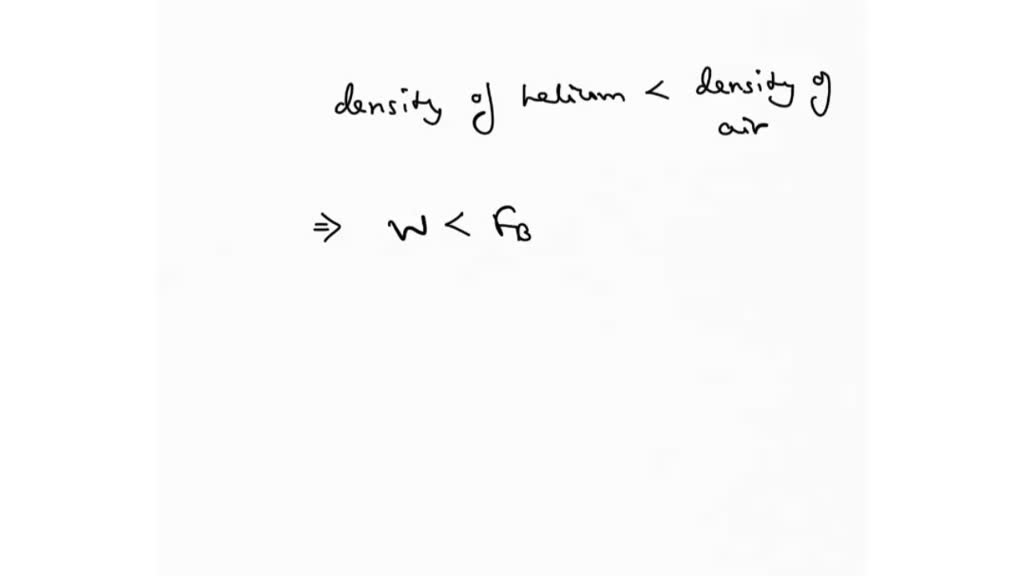 density of helium < density of
air
⇒ W < FB